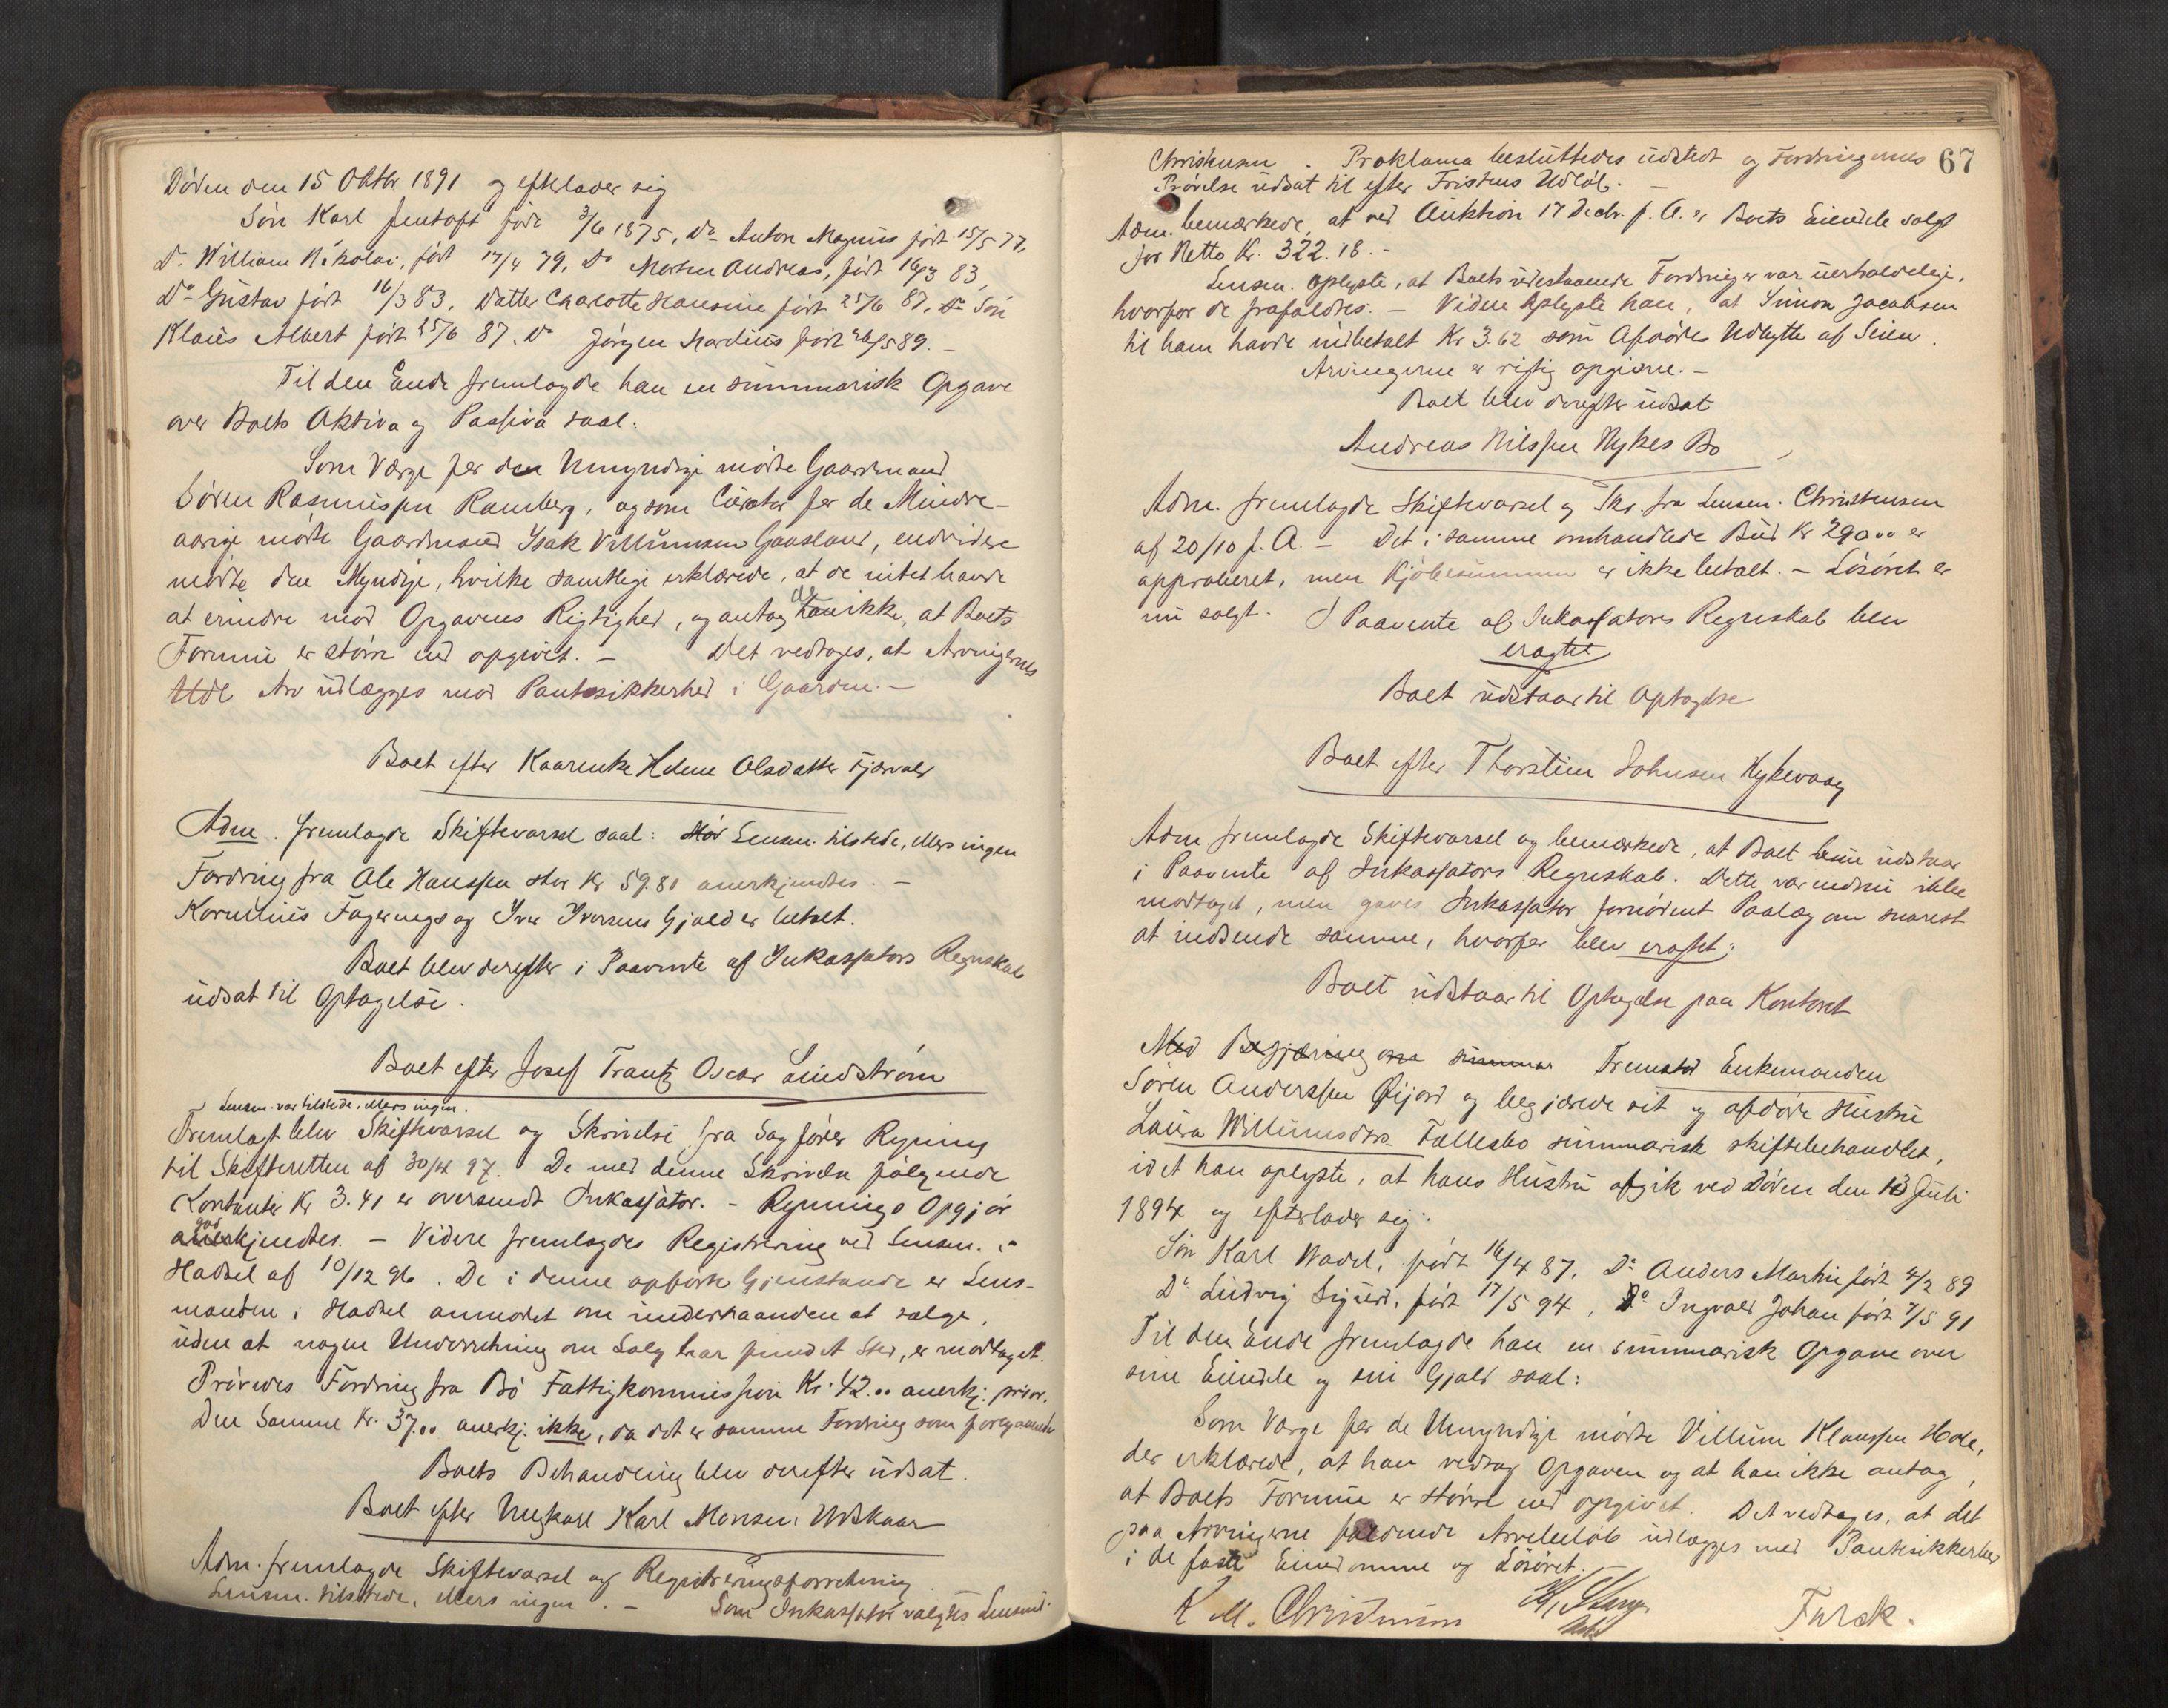 Døden den 15 Oktbr 1891 og efterlader sig
Søn Karl Jentoft føde 3/6 1875, Do Anton Magnus født 15/5 77,
Do William Nikolai, født 17/4 79, Do Morten Andreas, født 16/3 83,
Do Gustav født 16/3 83, Datter Charlotte Hansine født 25/6 87, Do Søn
Klaus Albert født 25/6 87, Do Jørgen Mardius født 26/5 89. -
Til den Ende fremlagde han en summarisk Opgave
over Boets Aktiva og Passiva saal:
Som Værge for den Umyndige mødte Gaardmand
Søren Rasmussen Ramberg, og som Curator for de Mindre-
aarige mødte Gaardmand Isak Villumsen Gaasland, endvidere
mødte den Myndige, hvilke samtlige erklærede, at de intet havde
at erindre mod Opgavens Rigtighed, og antog de han ikke, at Boets
Formue er større end opgivet. - Det vedtages, at Arvingernes
Udl Arv udlægges mod Pantesikkerhed i Gaarden. -
Boet efter Kaarenke Helene Olsdatter Fjærvold
Adm. fremlagde Skiftevarsel saal: Lensm. tilstede, ellers ingen
Fordring fra Ole Hanssen stor Kr 59.80 anerkjendtes. -
Kornelius Fagernes og Iver Iversens Gjæld er betalt.
Boet blev derefter i Paavente af Inkassators Regnskab
udsat til Optagelse.
Boet efter Josef Frantz Oscar Lindstrøm
Lensm. var tilstede, ellers ingen.
Fremlagt blev Skiftevarsel og Skrivelse fra Sagfører Rynning
til Skifteretten af 30/4 97. De med denne Skrivelse følgende
Kontanter Kr 3.41 er oversendt Inkassator. - Rynnings Opgjør
god
anerkjendtes. - Videre fremlagdes Registrering ved Lensm. i
Hadsel af 10/12 96. De i denne opførte Gjenstande er Lens-
manden i Hadsel anmodet om underhaanden at sælge,
uden at nogen Underretning om Salg har fundet Sted, er modtaget.
Prøvedes Fordring fra Bø Fattigkommission Kr. 42.00 anerkj. prior.
Den Samme Kr. 37.00 anerkj. ikke, da det er samme Fordring som foregaaende
Boets Behandling blev derefter udsat.
Boet efter Ungkarl Karl Monsen Utskaar
Adm. fremlagde Skiftevarsel og Registreringsforretning
Lensm. tilstede, ellers ingen. - Som Inkassator valgtes Lensmd.
67
Christensen. Proklama besluttedes udstedt og Fordringernes
Prøvelse udsat til efter Fristens Udløb. -
Adm. bemærkede, at ved Auktion 17 Decbr. f. A. er Boets Eiendele solgt
for Netto Kr. 322.18. -
Lensm. oplyste, at Boets udestaaende Fordringer var uerholdelige,
hvorfor de frafaldtes. - Videre oplyste han, at Simon Jacobsen
til ham havde indbetalt Kr 3.62 som Afdødes Udbytte af Seien.
Arvingerne er rigtig opgivne. -
Boet blev derefter udsat
Andreas Nilssen Nykes Bo
Adm. fremlagde Skiftevarsel og Skr. fra Lensm. Christensen
af 20/10 f. A. - Det i samme omhandlede Bud Kr 290.00 er
approberet, men Kjøbesummen er ikke betalt. - Løsøret er
nu solgt. I Paavente af Inkassators Regnskab blev
eragtet
Boet udstaar til Optagelse
Boet efter Thorstein Johnsen Nykevaag
Adm fremlagde Skiftevarsel og bemærkede, at Boet udstaar
i Paavente af Inkassators Regnskab. Dette var endnu ikke
modtaget, men gaves Inkassator fornødent Paalæg om snarest
at indsende samme, hvorfor blev eragtet:
Boet udstaar til Optagelse paa Kontoret
Med Begjæring om summar Fremstod Enkemanden
Søren Anderssen Øijord og begjærede sit og afdøde Hustru
Laura Willumsdtrs Fællesbo summarisk skiftebehandlet,
idet han oplyste, at hans Hustru afgik ved Døden den 13 Juli
1894 og efterlader sig:
Søn Karl Wadel, født 16/4 87, Do Anders Martin født 4/2 89
Do Ludvig Sigurd, født 17/5 94, Do Ingvald Johan født 7/5 91
Til den Ende fremlagde han en summarisk Opgave over
sine Eiendele og sin Gjæld saal:
Som Værge for de Umyndige mødte Villum Klaussen Hole,
der erklærede, at han vedtog Opgaven og at han ikke antog,
at Boets Formue er større end opgivet. Det vedtages, at det
paa Arvingerne faldende Arvebeløb udlægges med Pantesikkerhed
i de faste Eiendomme og Løsøret. -
K M. Christensen
Fuldm.